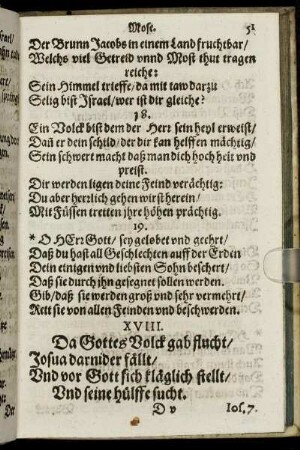 Mose.
51
Der Brunn Jacobs in einem Land fruchtbar/
Welchs viel Getreid vnnd Most thut tragen
reiche:
Sein Himmel trieffe/da mit taw darzu
Selig bist Israel/wer ist dir gleiche?
18.
Ein Volck bist dem der Herr sein heyl erweist/
Dañ er dein schild/der dir kan helffen mächtig/
Sein schwert macht daß man dich hoch heit vnd
preist.
Dir werden ligen deine Feind verächtig:
Du aber herzlich gehen wirst herein/
Mit Füssen tretten jhre höhen prächtig.
19.
* O HErr Gott/ sey gelobet vnd geehrt/
Daß du hast all Geschlechten auff der Erden
Dein einigen vnd liebsten Sohn beschert/
Daß sie durch jhn gesegnet sollen werden.
Gib/daß sie werden groß vnd sehr vermehrt/
Rett sie von allen Feinden vnd beschwerden.
XVIII.
Da Gottes Volck gab flucht/
Josua darnider fällt/
Vnd vor Gott sich kläglich stellt/
Vnd seine hülffe sucht.
D v
Jos. 7.